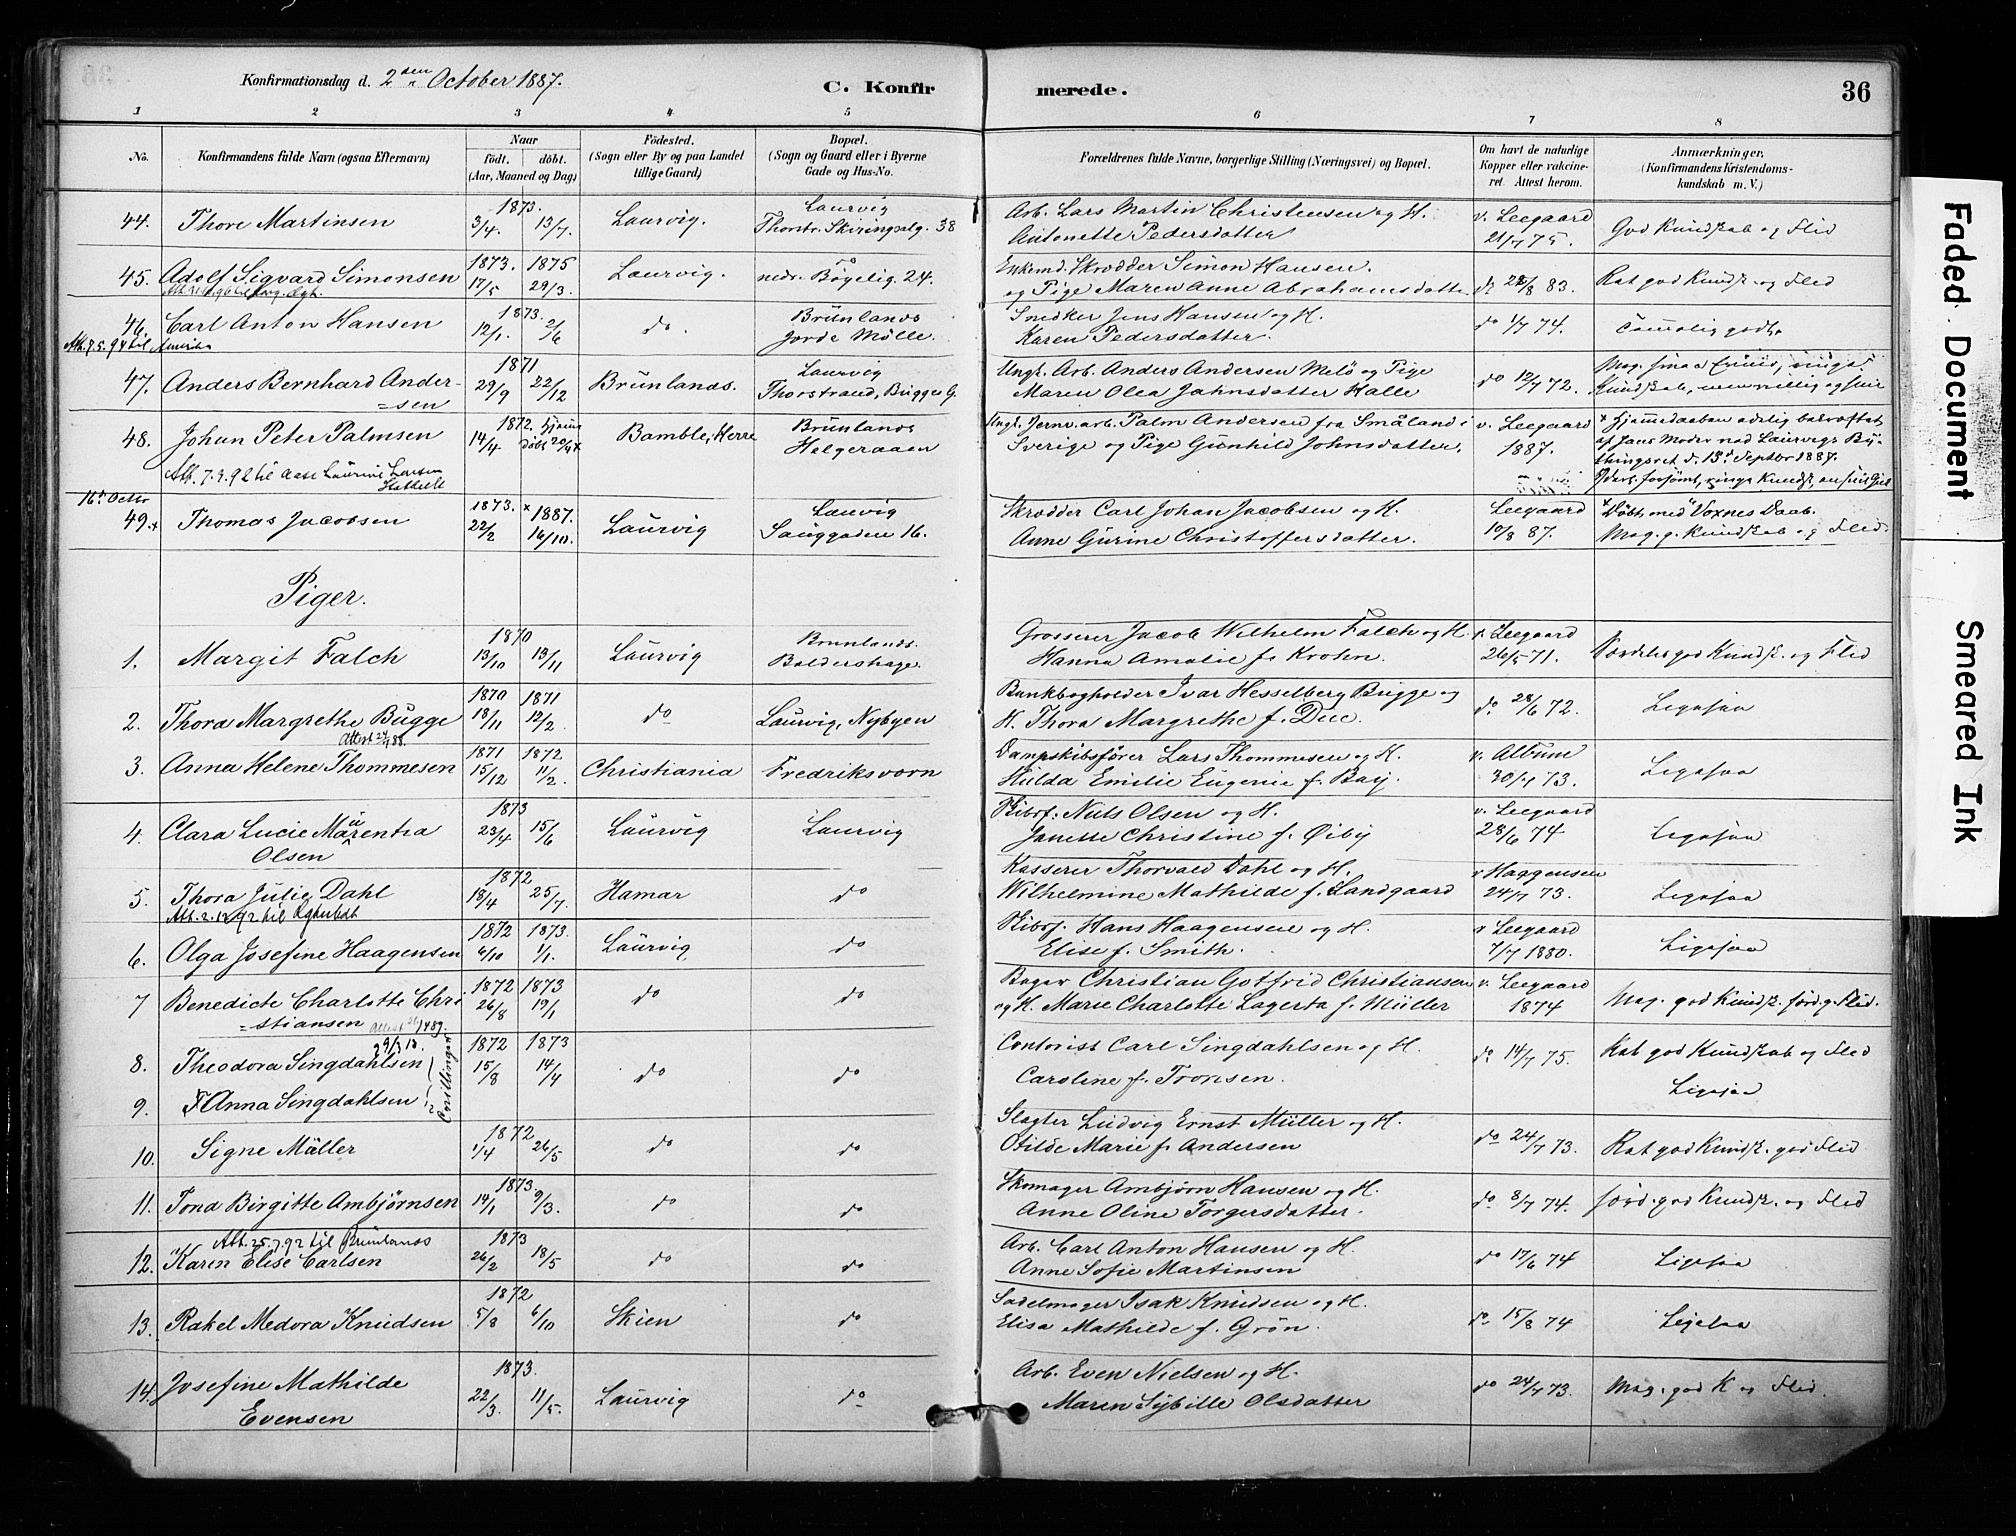 Konfirmationsdag d. 2den October 1887.
C. Konfirmerede.
36
1 2 3 4 5 6 7 8
No. Konfirmandens fulde Navn (ogsaa Efternavn) Naar født. døbt. (Aar, Maaned og Dag) Fødested. (Sogn eller By og paa Landet tillige Gaard) Bopæl. (Sogn og Gaard eller i Byerne Gade og Hus-No. Forældrenes fulde Navne, borgerlige Stilling (Næringsvei) og Bopæl. Om havt de naturlige Kopper eller vakcineret. Attest herom. Anmærkninger. (Konfirmandens Kristendomskundskab m. V.)
44. Thore Martinsen 1873. 3/4. 13/7. Laurvig. Laurvig Thorstr. Skiringsalg. 38 Arb. Lars Martin Christensen og H. Antonette Pedersdatter v. Leegaard 21/7 75. God Kundskab og Flid
45. Adolf Sigvard Simonsen 1873. 17/5 1875 29/3. Laurvig. do nedr. Bøgelig. 24. Enkemd. Skrædder Simon Hansen. og Pige Maren Anne Abrahamsdatter do 28/8 83. Ret god Kundsk. og Flid
46. Carl Anton Hansen 1873. 12/1. 2/6 do. Brunlands Jorde Mølle. Snedker Jens Hansen og H. Karen Pedersdatter. do 1/7 74. Temmelig godt
Att. 7.5.94 til Amerika
47. Anders Bernhard Ander-=sen 1871 29/9 22/12 Brunlands. Laurvig Thorstrand, Brigge G. Ungk. Arb. Anders Andersen Melø og Pige Maren Olea Jahnsdatter Halle do 12/7 72.
48. Johan Peter Palmsen 1872. 14/4 hjem døbt 20/4 x Bamble, Herre Brunlands Helgeraaen Ungk. Jernv. arb. Palm Andersen fra Småland i Sverige og Pige Gunhild Johnsdatter. v. Leegaard 1887. x Hjemmedaaben edelig bekræftet af Jans Moder ved Laurvigs Bythingsret d. 13d Septbr 1887.
Att. 7.3.92 til Aase Laurine Larsen
16d Octbr
49.x Thomas Jacobsen 1873. 22/2 x 1887. 16/10. Laurvig Laurvig Sauggaden 16. Skrædder Carl Johan Jacobsen og H. Anne Gurine Christoffersdatter. Leegaard 10/8 87. x Døbt med Voxnes Daab. Meg. g. Kundskab og Flid.
Piger.
1. Margit Falch 1870 13/10 13/11 Laurvig Brunlands. Baldershage. Grosserer Jacob Wilhelm Falch og H. Hanna Amalie f. Krohn. v. Leegaard 26/5 71. Særdeles god Kundsk. og Flid
2. Thora Margrethe Bugge 1870 18/11 1871 12/2. do Laurvig, Nybyen Bankbogholder Ivar Hesselberg Bugge og H. Thora Margrethe f. Due. do 28/6 72. Ligesaa
3. Anna Helene Thommesen 1871 15/12 1872 11/2. Christiania Fredriksvorn Dampskibsfører Lars Thommesen og H. Hulda Emilie Eugenie f. Bay. v. Album 30/4 73. Ligesaa
4. Clara Lucie Maurentia Olsen 1873 23/4 15/6 Laurvig Laurvig Skibsf. Niels Olsen og H. Janette Christine f. Øiby v. Leegaard 28/6 74 Ligesaa
5. Thora Julie Dahl 1872 18/4 25/7. Hamar do Kasserer Thorvald Dahl og H. Wilhelmine Mathilde f. Landgaard v Haggensen 24/7 73. Ligesaa
6. Olga Josefine Haagensen 1872 6/10 1873. 1/1. Laurvig do Skibsf. Hans Haagensen og H. Elise f. Smith. v Leegaard 7/7 1880. Ligesaa
7 Benedicte Charlotte Chri=stiansen 1872 26/8 1873 19/1 do do Bager Christian Gotfrid Christiansen og H. Marie Charlotte Lagerta f. Müller v. Leegaard 1874 Meg. god Kundsk. særd. g. Flid.
8. Theodora Singdahlsen 1872 15/8 1873 14/4 do do Contorist Carl Singdahlsen og H. Caroline f. Tronsen. do 14/7 75. Ret god Kundskab og Flid
9. Anna Singdahlsen Tvillinger Ligesaa
10. Signe Müller 1872 1/4 26/5 do do Slagter Ludvig Ernst Müller og H. Otilde Marie f. Andersen do 24/7 73. Ret god Kundsk. god Flid
11. Tona Birgitte Ambjørnsen 1873. 14/1 9/3. do do Skomager Ambjørn Hansen og H. Anne Oline Torgersdatter. do 8/7 74. særd. god Kundsk. og Flid
Att. 25.7.92 til Brunlands
12. Karen Elise Carlsen 1873 26/2 18/5 do do Arb. Carl Anton Hansen og H. Anne Sofie Martinsen do 17/6 74 Ligesaa
13. Rakel Medora Knudsen 1872 5/8 6/10 Skien do Sadelmager Isak Knudsen og H. Elisa Mathilde f. Grøn. do 15/8 74 Ligesaa
14. Josefine Mathilde Evensen 1873. 22/3. 11/5. Laurvig do Arb. Even Nielsen og H. Maren Sybille Olsdatter do 24/7 73. Meg. god K og Flid.
Faded Document
Smeared Ink